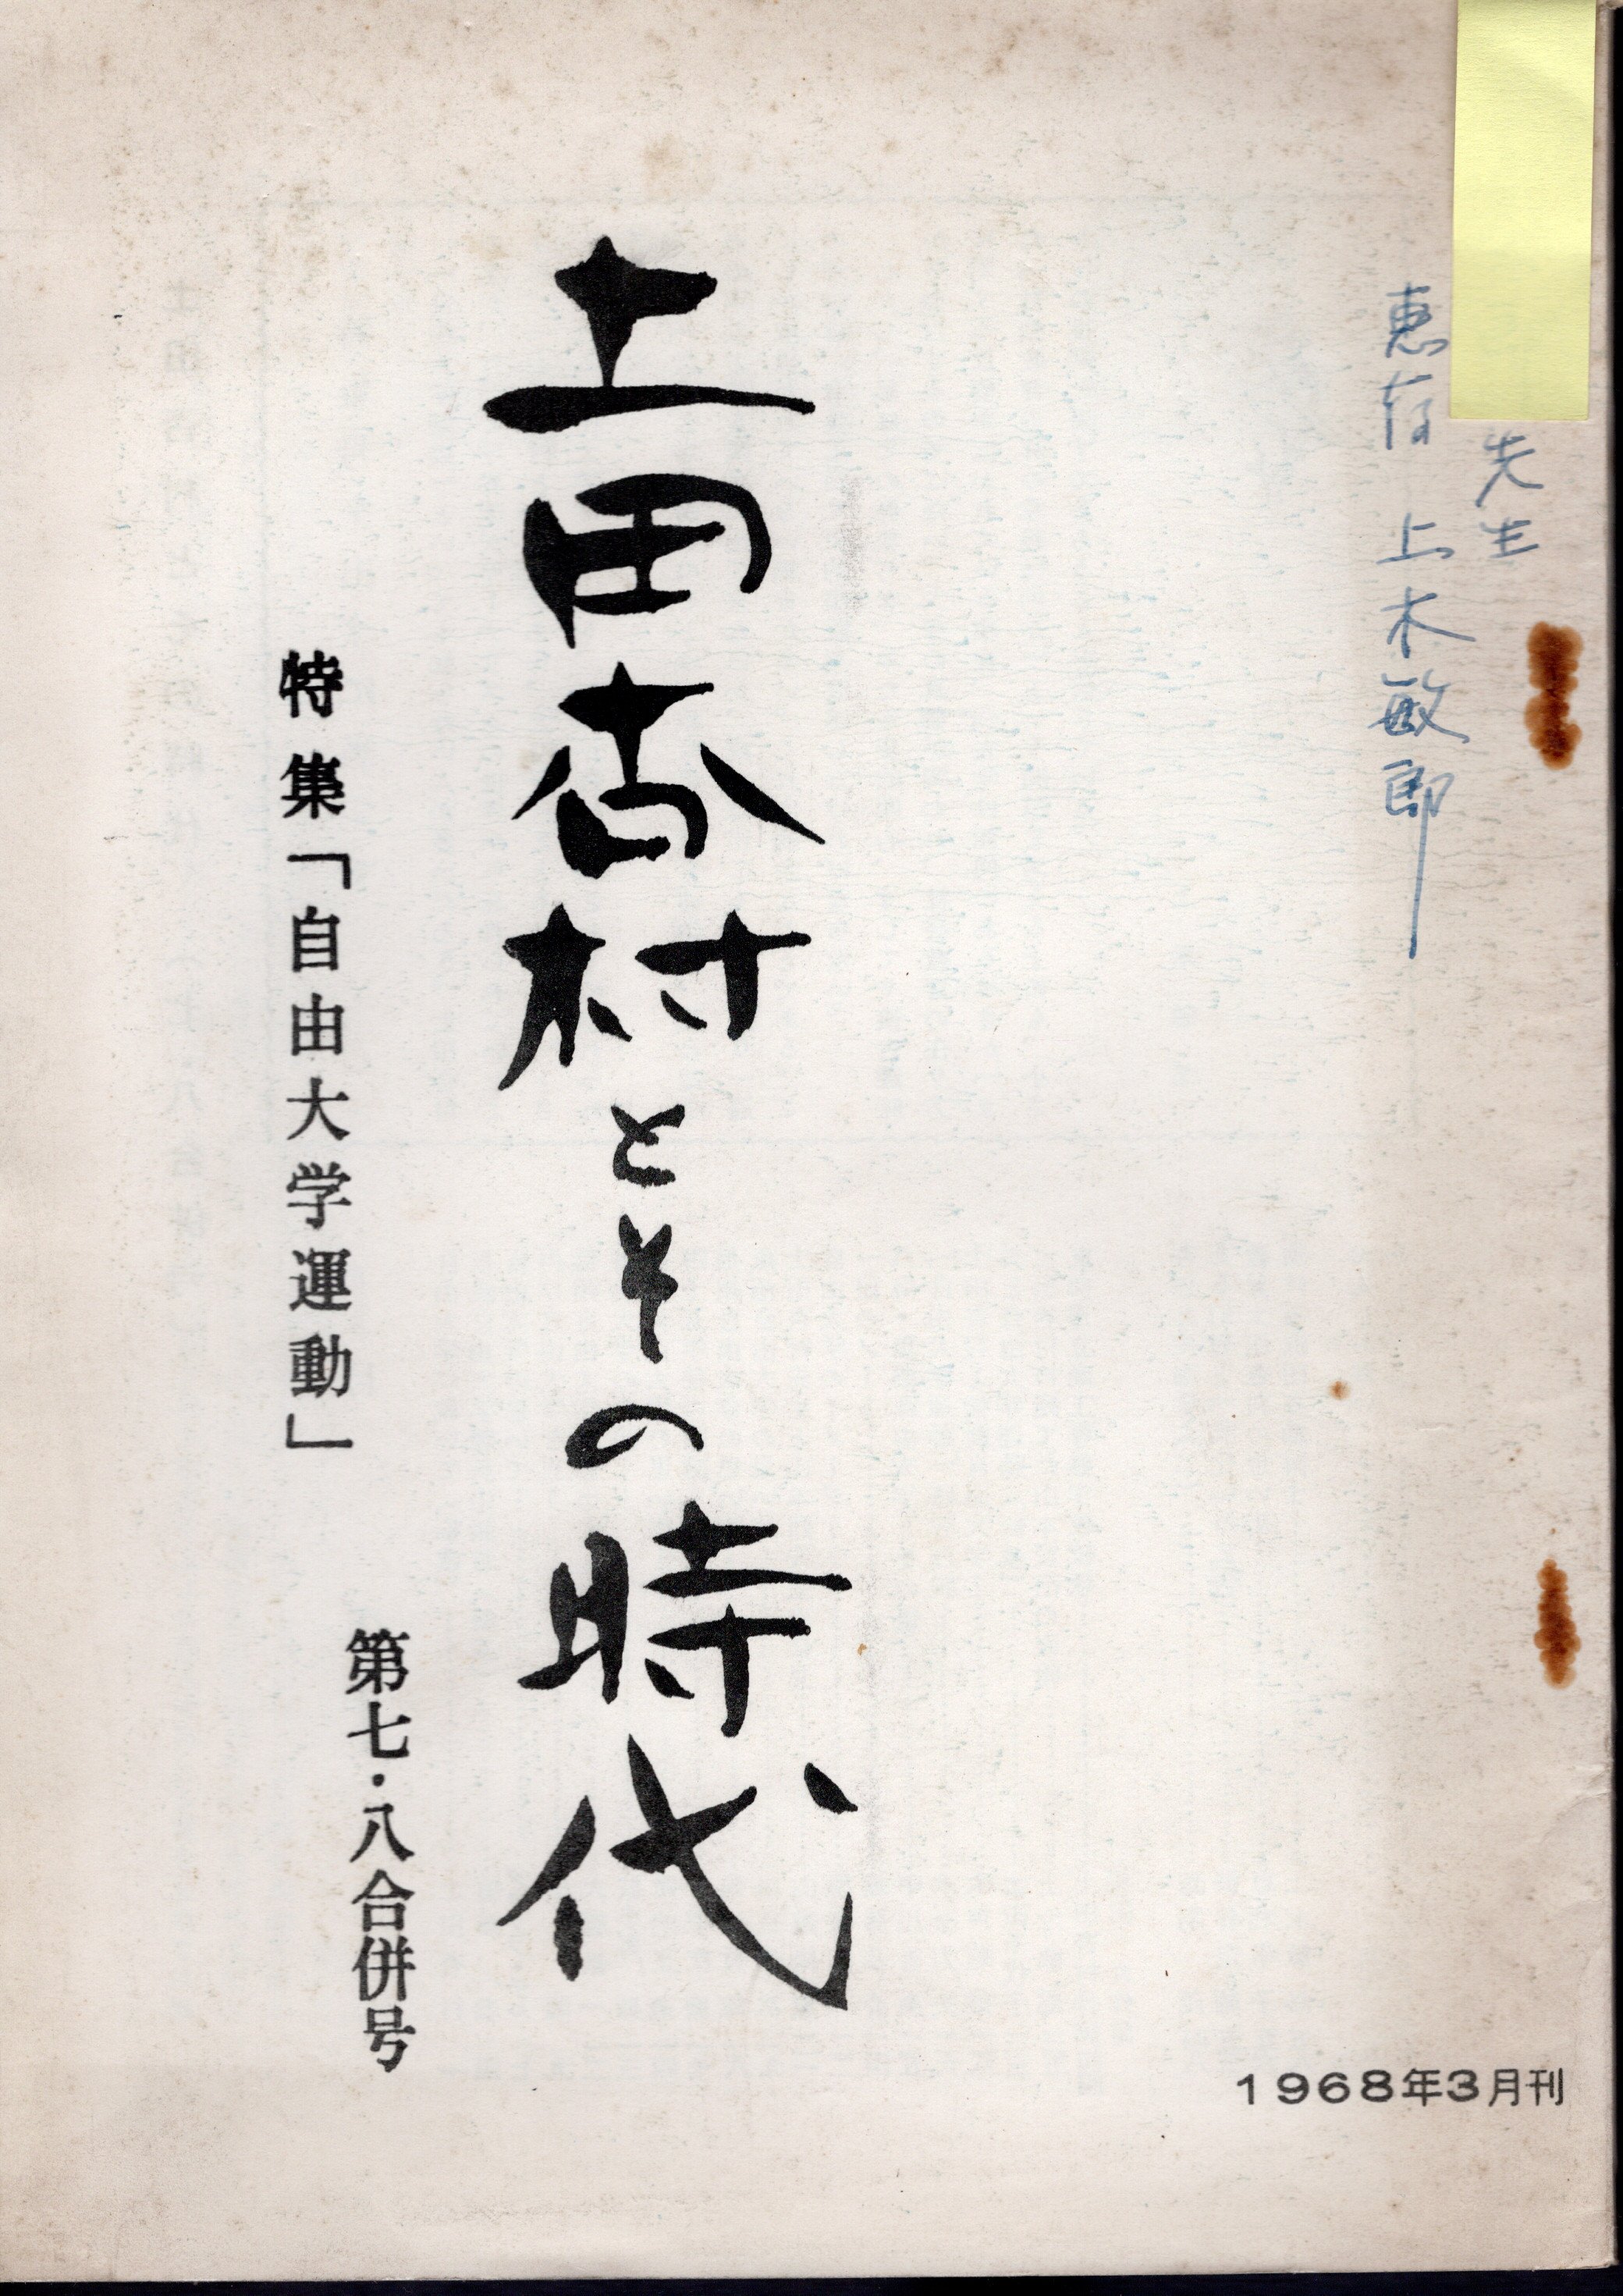 先生
恵存 上木敏郎
土田杏村とその時代
特集「自由大学運動」
第七・八合併号
1968年3月刊